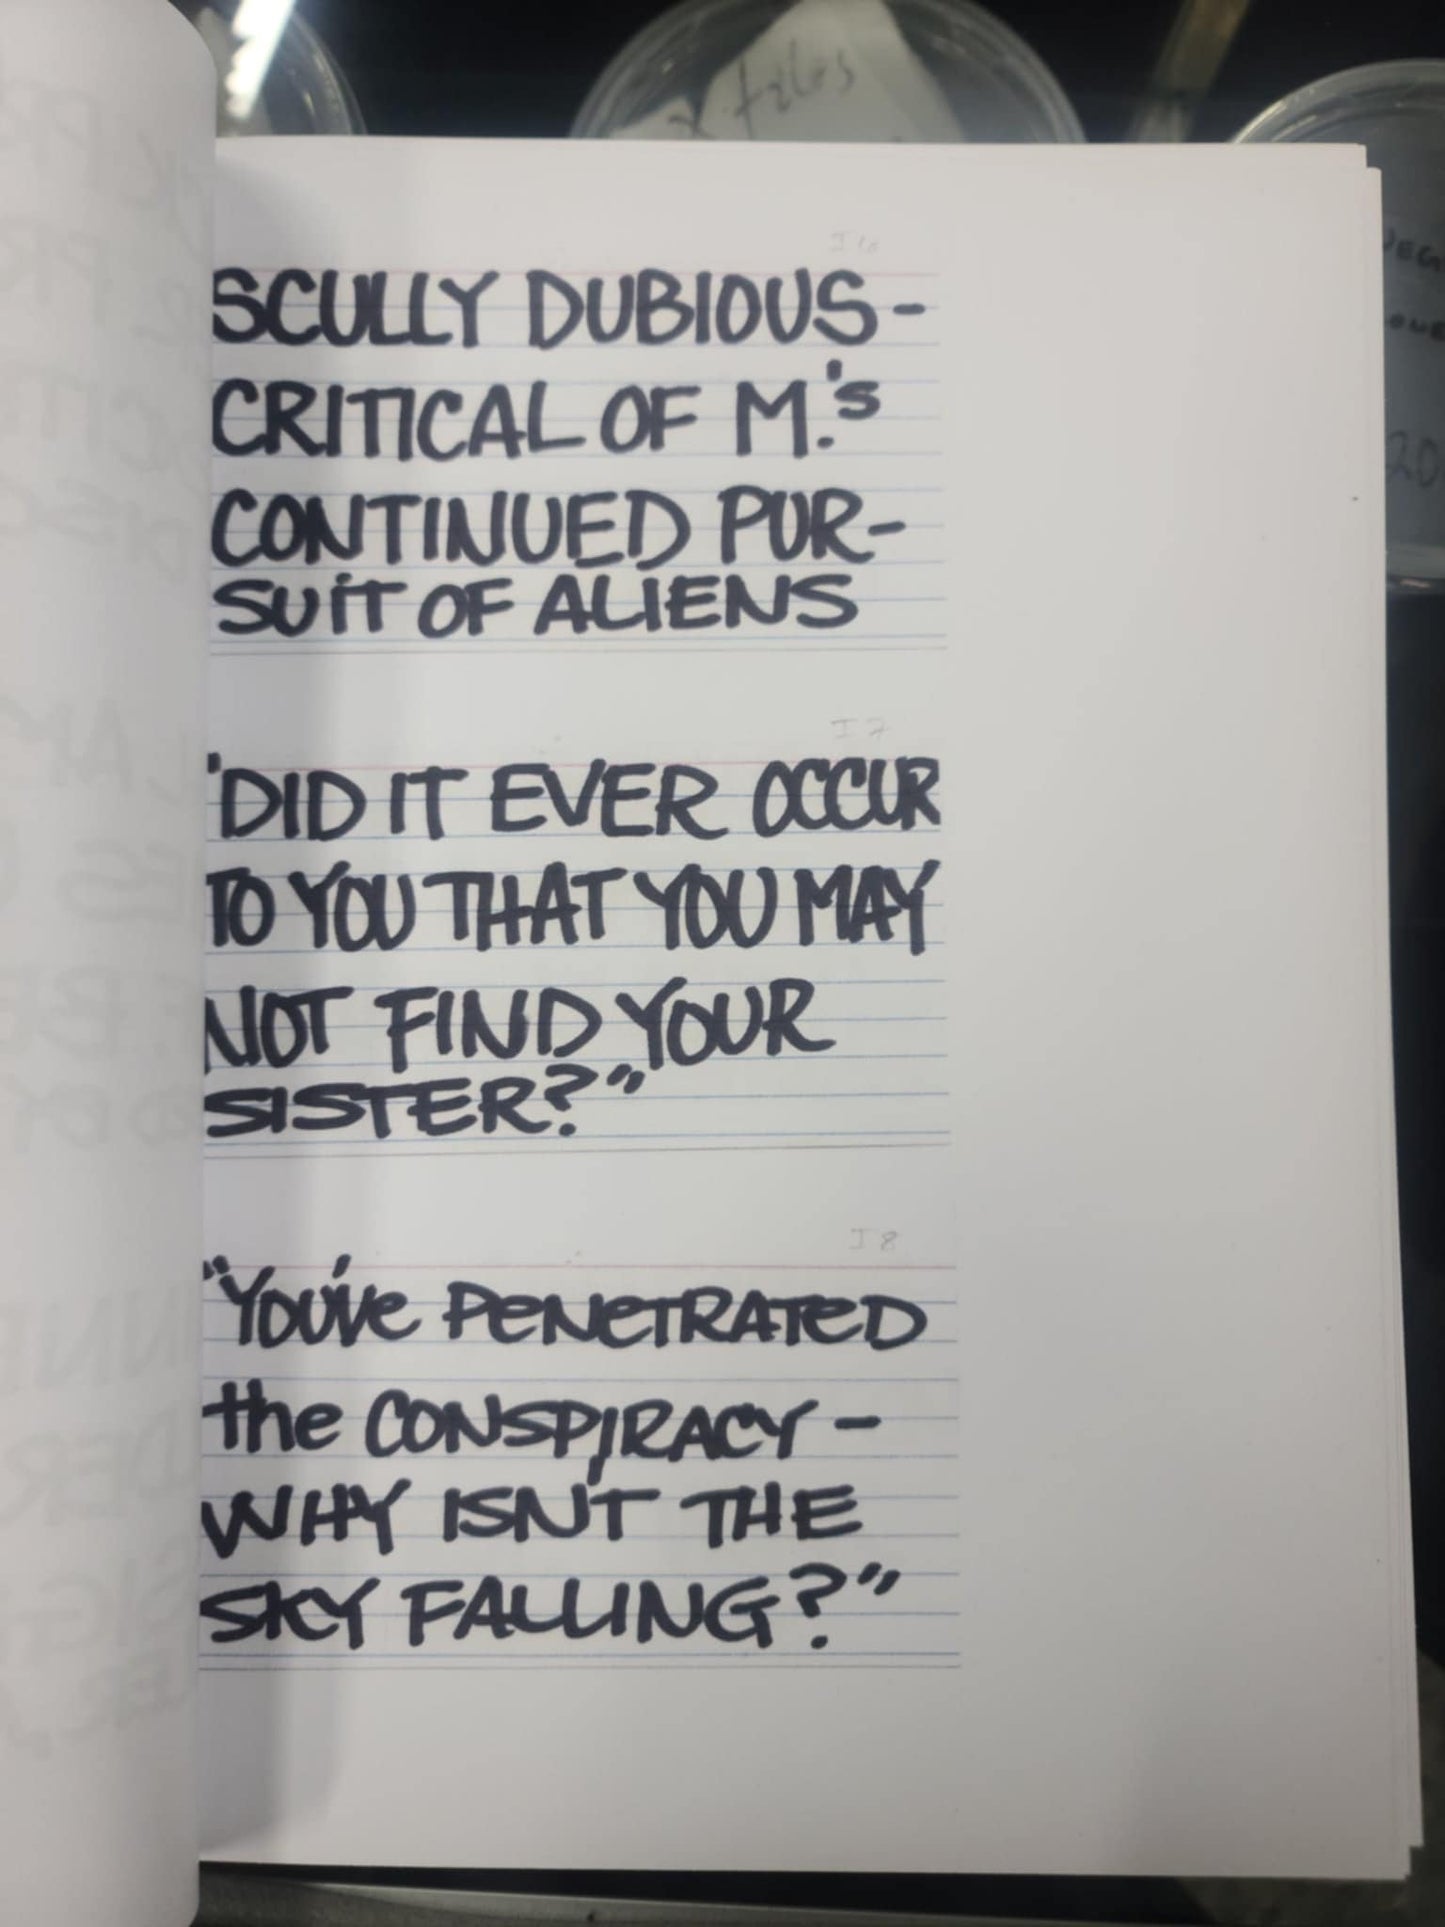 x files
I6
SCULLY DUBIOUS-
CRITICAL OF M.'s
CONTINUED PUR-
SUIT OF ALIENS
I7
"DID IT EVER OCCUR
TO YOU THAT YOU MAY
NOT FIND YOUR
SISTER?"
I8
"You've PeNeTRATeD
the CONSPIRACY-
WHY ISN'T THE
SKY FALLING?"